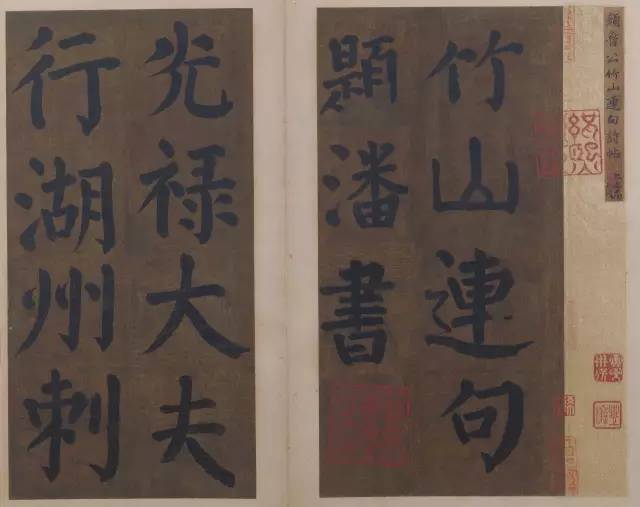 顔魯公竹山連句詩帖 上品
竹山連句
題潘書
光禄大夫
行湖州刺